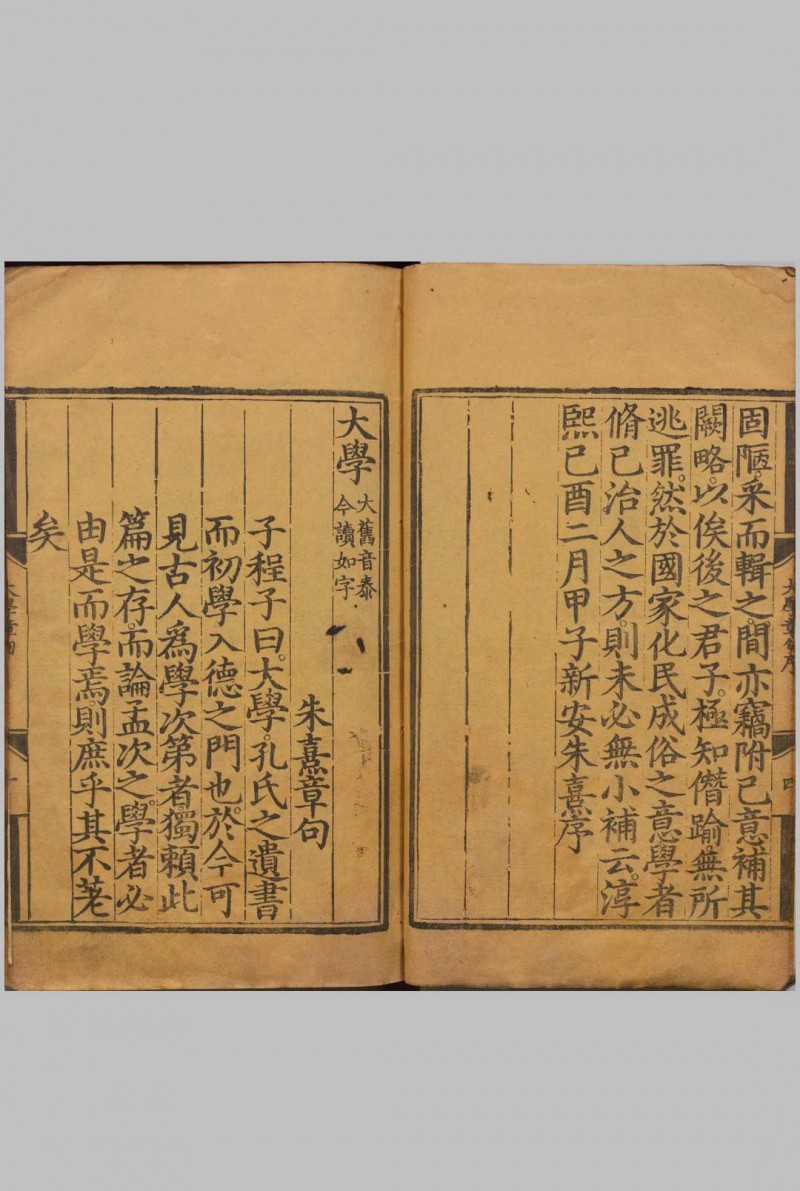 固陋。采而輯之。間亦竊附己意補其
闕略。以俟後之君子。極知僭踰。無所
逃罪。然於國家化民成俗之意學者
脩己治人之方。則未必無小補云。淳
熙己酉二月甲子新安朱熹序
大學章句序
四
大學 大舊音泰
今讀如字
朱熹章句
子程子曰。大學。孔氏之遺書
而初學入德之門也。於今可
見古人爲學次第者。獨賴此
篇之存。而論孟次之。學者必
由是而學焉。則庶乎其不差
矣
大學章句
一